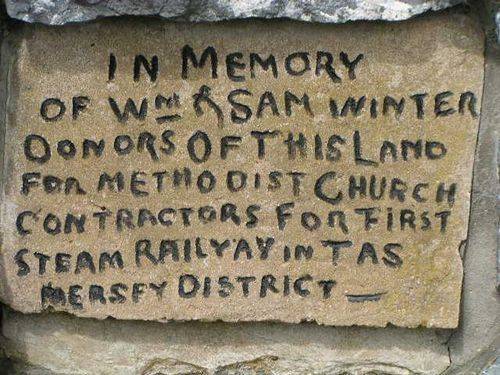 IN MEMORY
OF WM & SAM WINTER
DONORS OF THIS LAND
FOR METHODIST CHURCH
CONTRACTORS FOR FIRST
STEAM RAILYAY IN TAS
MERSEY DISTRICT